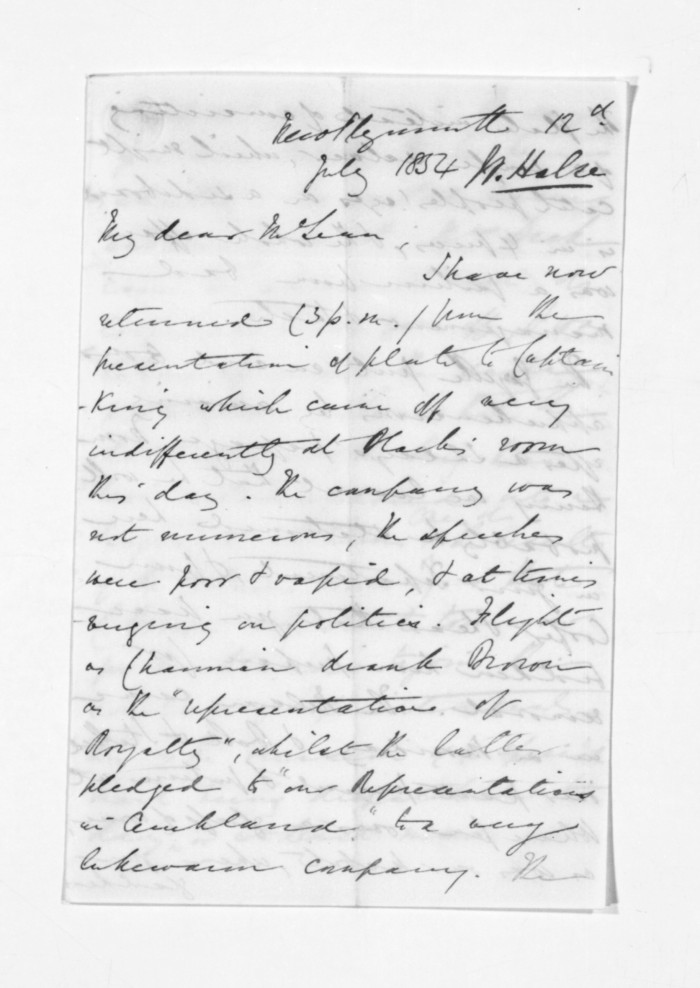 New Plymouth 12th
July 1854 W. Halse
My dear McLean,
I have now
returned (3 p.m.) from the
presentation of plate to Captain
King which came off very
indifferently at Black's room
this day. The company was
not numerous, the speeches
were poor & vapid, & at times
verging on politics. Flight
as Chairman drank Brown
as the "representative of
Royalty", whilst the latter
pledged to "our Representatives
in Auckland" to a very
lukewarm company. The